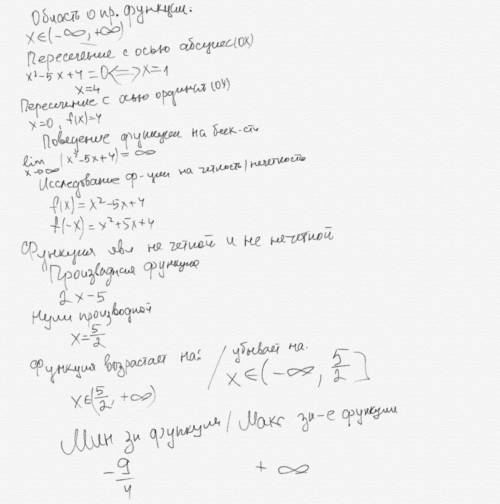 Область опр. функции:
x∈(-∞,+∞)
Пересечение с осью абсцисс(OX)
x²-5x+4=0<=>x=1
x=4
Пересечение с осью ординат (OY)
x=0, f(x)=4
Поведение функции на беск-сти
lim (x²-5x+4)=∞
x→∞
Исследование ф-ции на четность/нечетность
f(x)=x²-5x+4
f(-x)=x²+5x+4
Функция явл не четной и не нечетной
Производная функции
2x-5
Нули производной
x=5/2
Функция возрастает на: / убывает на.
x∈(5/2, +∞) x∈(-∞, 5/2]
Мин зн функции / Макс зн-е функции
-9/4 +∞